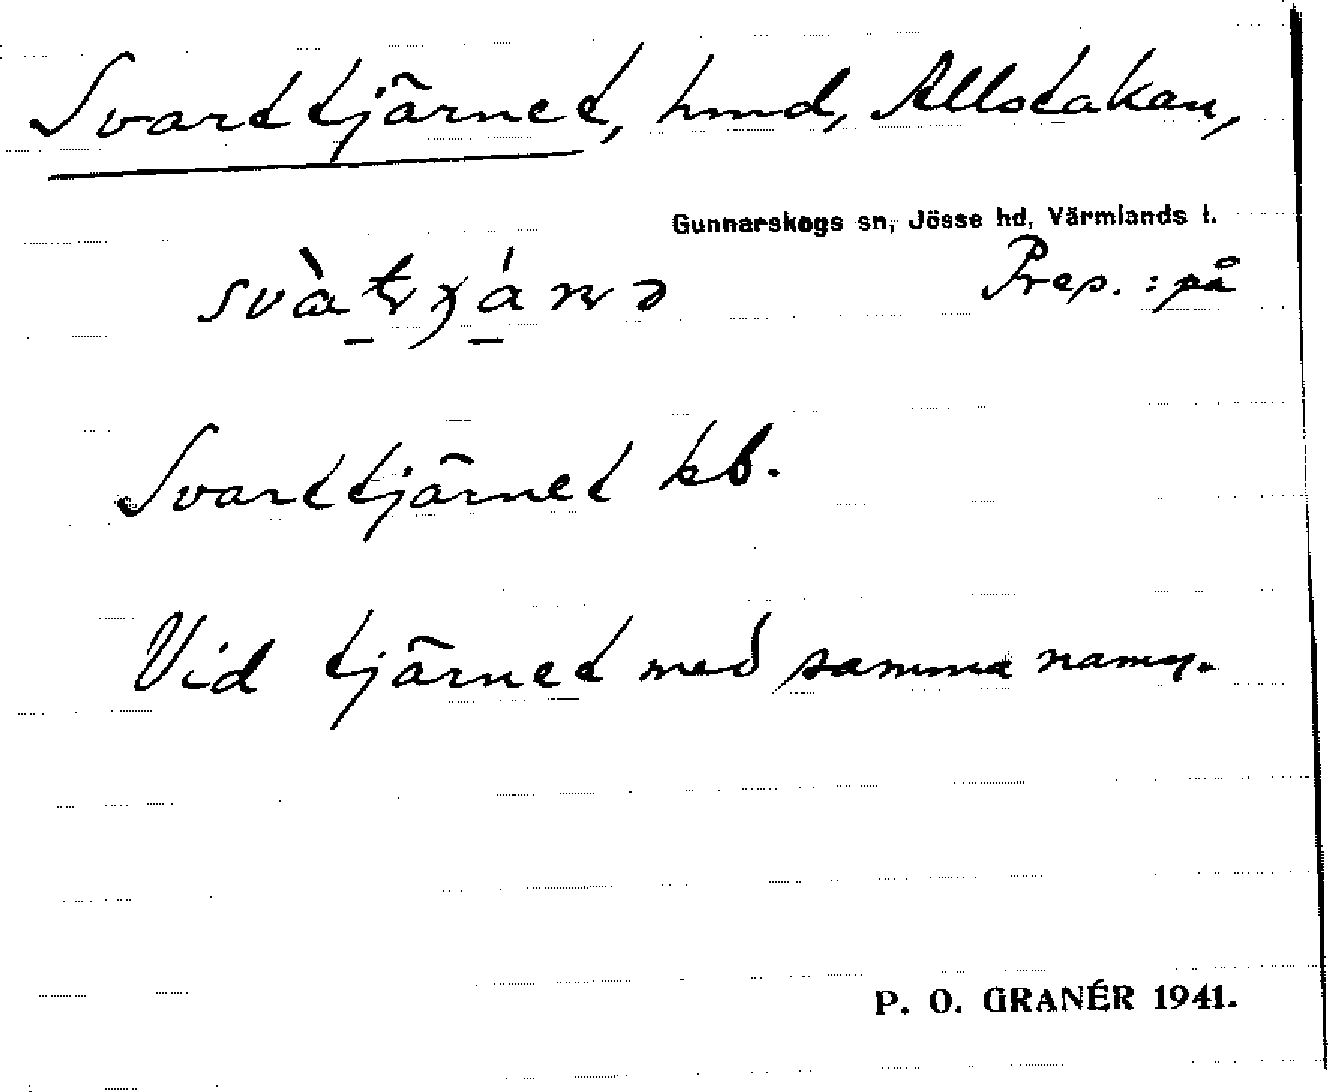 Svarttjärnet, hmd, Allstakan,
Gunnarskogs sn, Jösse hd, Värmlands l.
Prep. : på
Svarttjärnet kb.
Vid tjärnet med samma namn.
P. O. GRANÉR 1941.